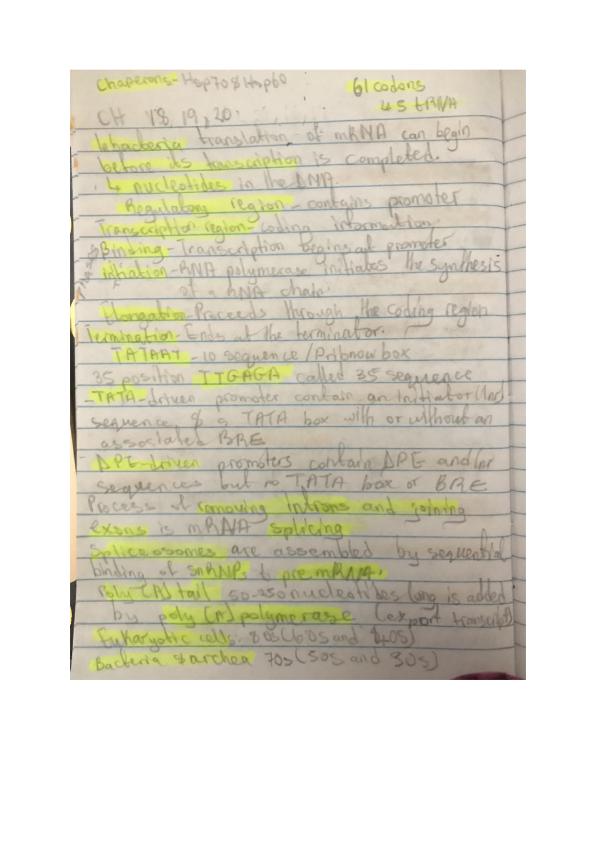 Chaperons- Hsp70 & Hsp60
61 codons
45 tRNA
CH 18, 19, 20:
In bacteria translation of mRNA can begin
before its transcription is completed.
4 nucleotides in the DNA
Regulatory region - contains promoter
Transcription region- coding information
Binding- Transcription begins at promoter
Initiation- RNA polymerase initiates the synthesis
of a RNA chain.
Elongation- Proceeds through the coding region
Termination- Ends at the terminator.
TATAAT -10 sequence / Pribnow box
35 position TTGAGA called 35 sequence
-TATA-driven promoter contain an initiator (Inr)
sequence, & a TATA box with or without an
associated BRE
DPE-driven promoters contain DPE and Inr
sequences but no TATA box or BRE
Process of removing introns and joining
exons is mRNA splicing
Spliceosomes are assembled by sequential
binding of snRNPs to pre mRNA.
Poly (A) tail 50-250 nucleotides long is added
by poly (A) polymerase. (export transcript)
Eukaryotic cells- 80s (60s and 40s)
Bacteria & archea 70s (50s and 30s)